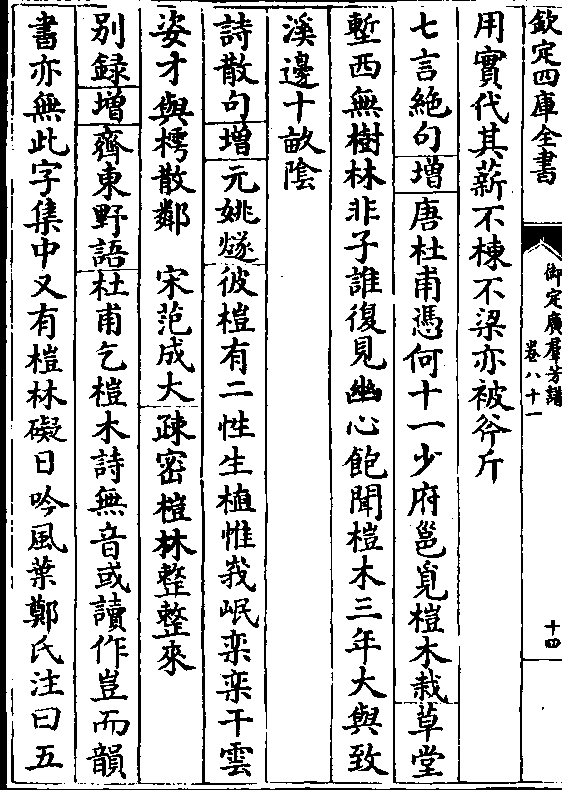 欽定四庫全書
御定廣羣芳譜
卷八十一
十四
用實代其薪不棟不梁亦被斧斤
七言絶句增唐杜甫憑何十一少府邕覓榿木栽草堂
塹西無樹林非子誰復見幽心飽聞榿木三年大與致
溪邊十畝陰
詩散句增元姚燧彼榿有二性生植惟我岷栾栾干雲
姿才與樗散鄰 宋范成大疎密榿林整整來
别録增齊東野語杜甫乞榿木詩無音或讀作豈而韻
書亦無此字集中又有榿林礙日吟風葉鄭氏注曰五